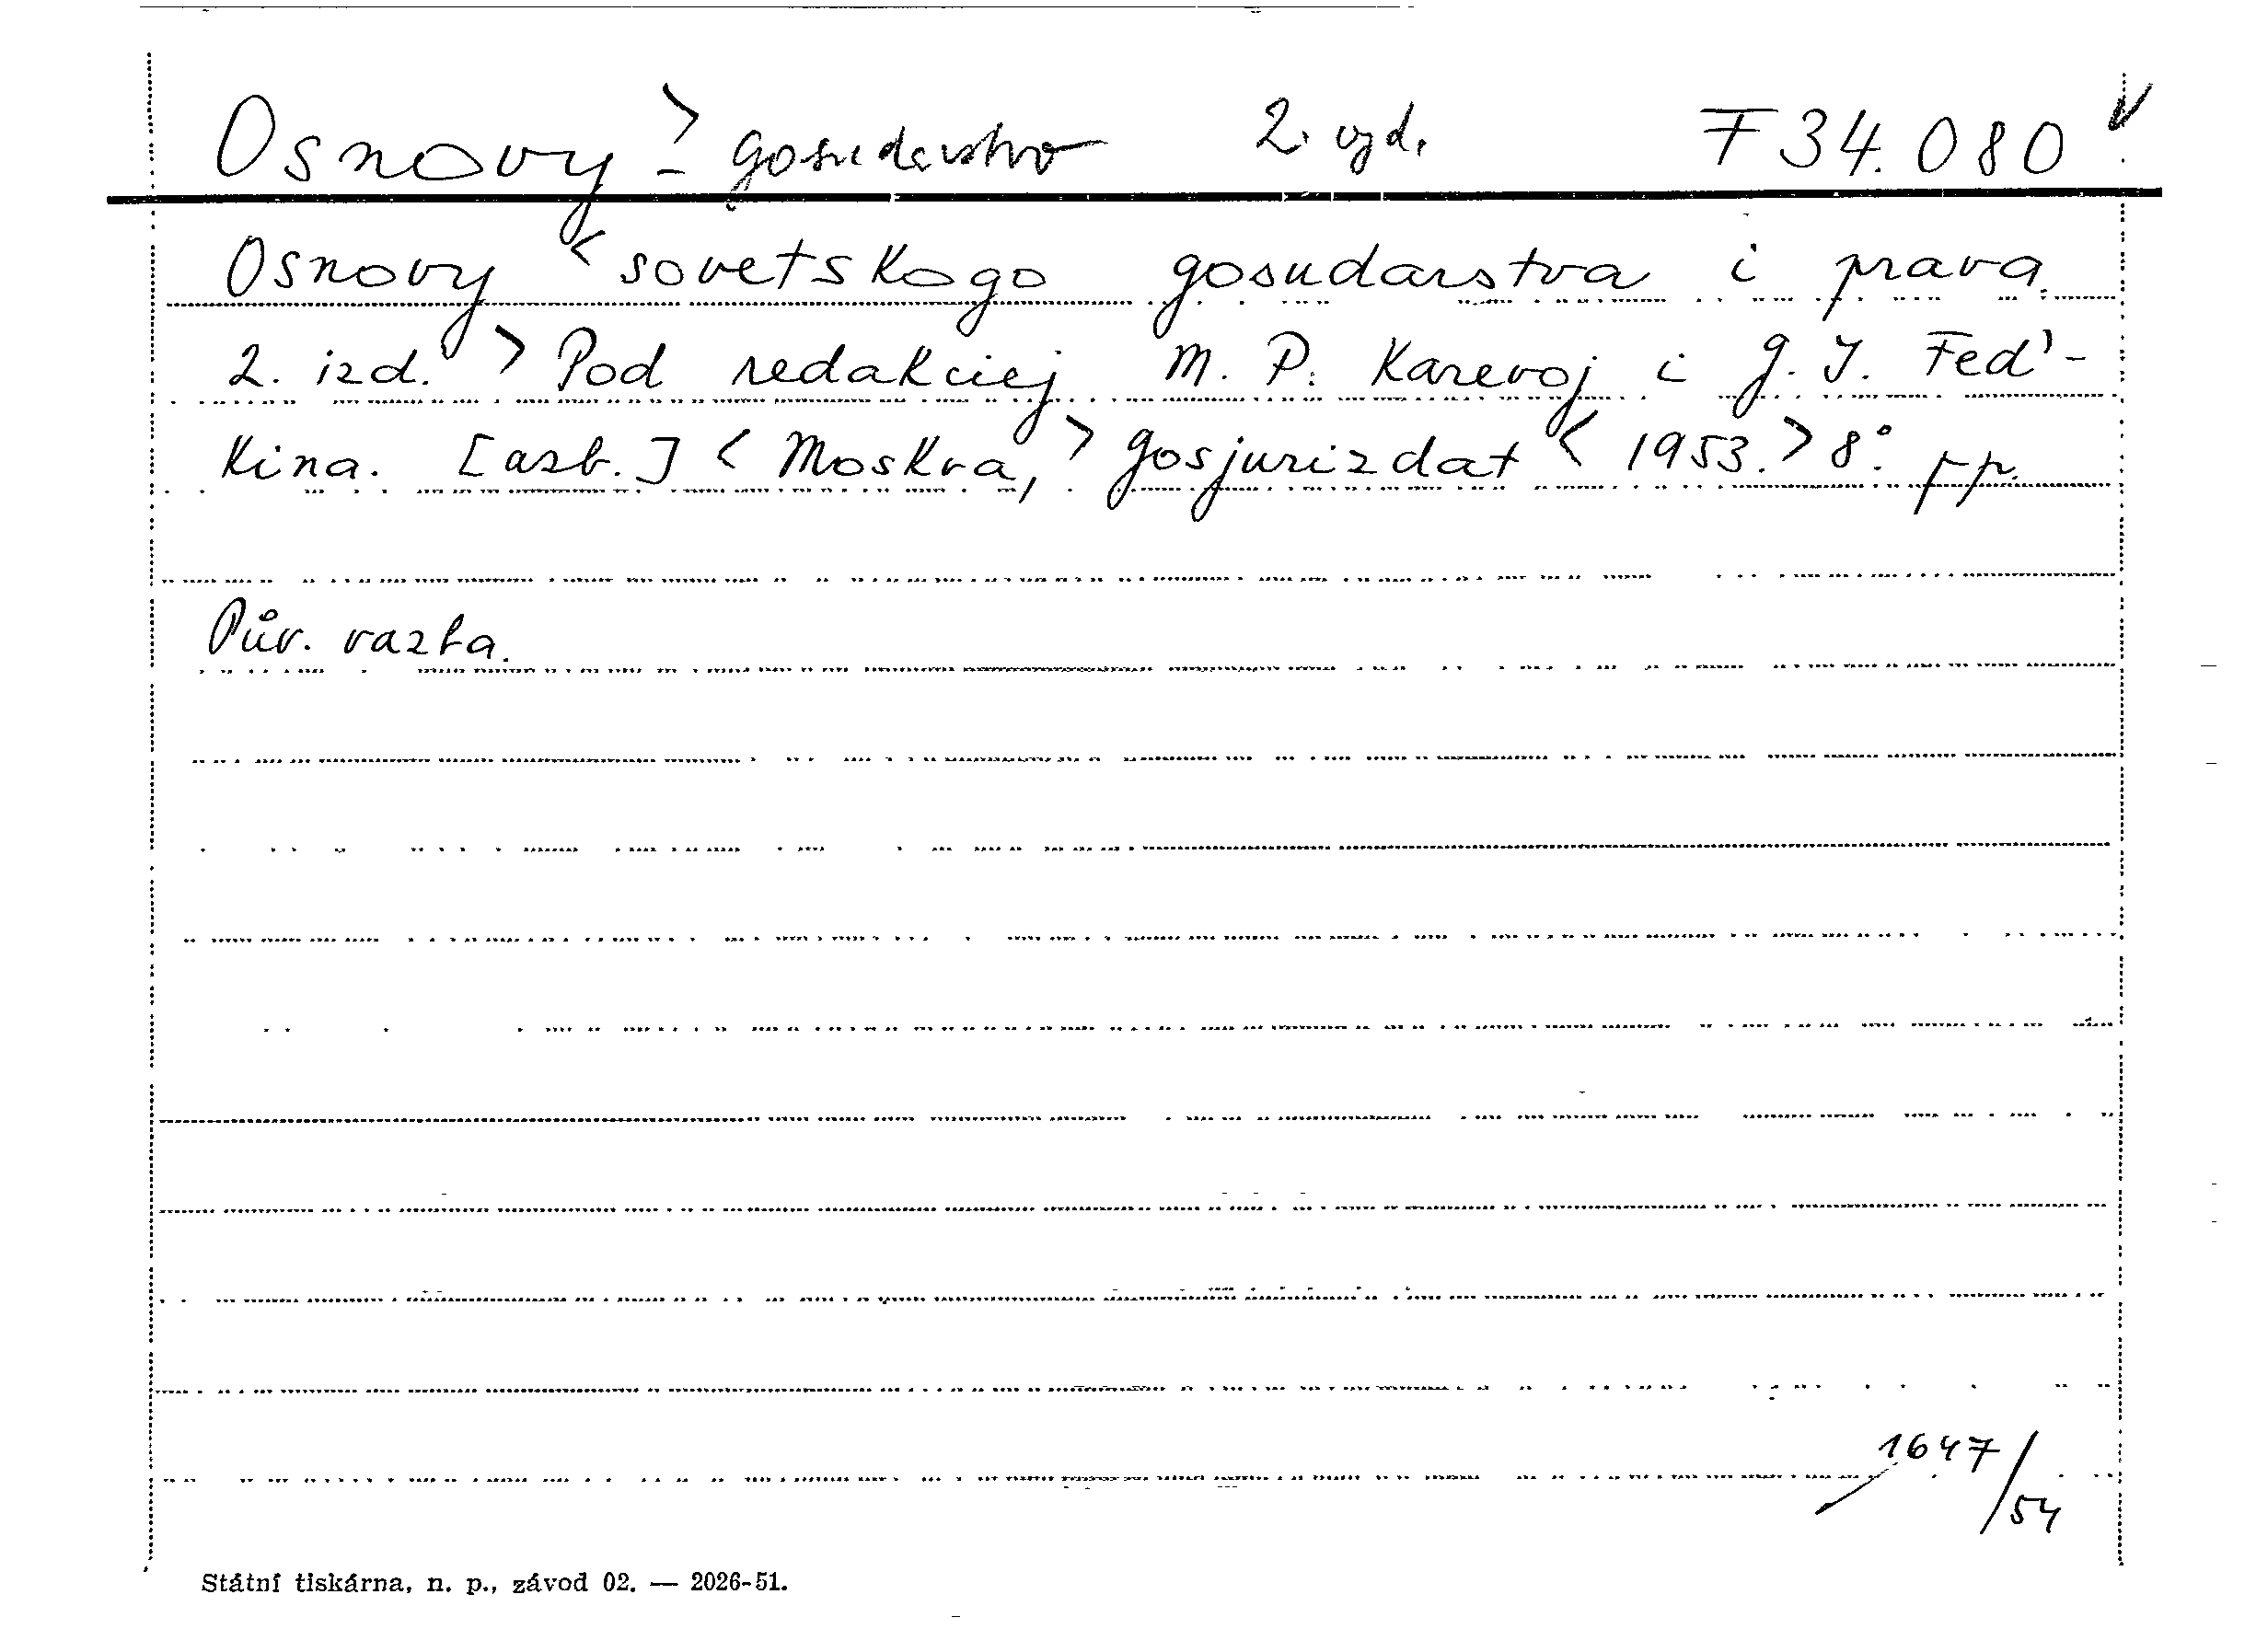 Osnovy > - gosudarstvo 2. vyd. F 34.080 v
Osnovy < sovetskogo gosudarstva i prava.
2. izd. > Pod redakciej M. P. Karevoj i G. I. Feď-
kina. [azb.] < Moskva, > Gosjurizdat < 1953. > 8°. pp.
Pův. vazba.
1647/54
Státní tiskárna, n. p., závod 02. — 2026-51.